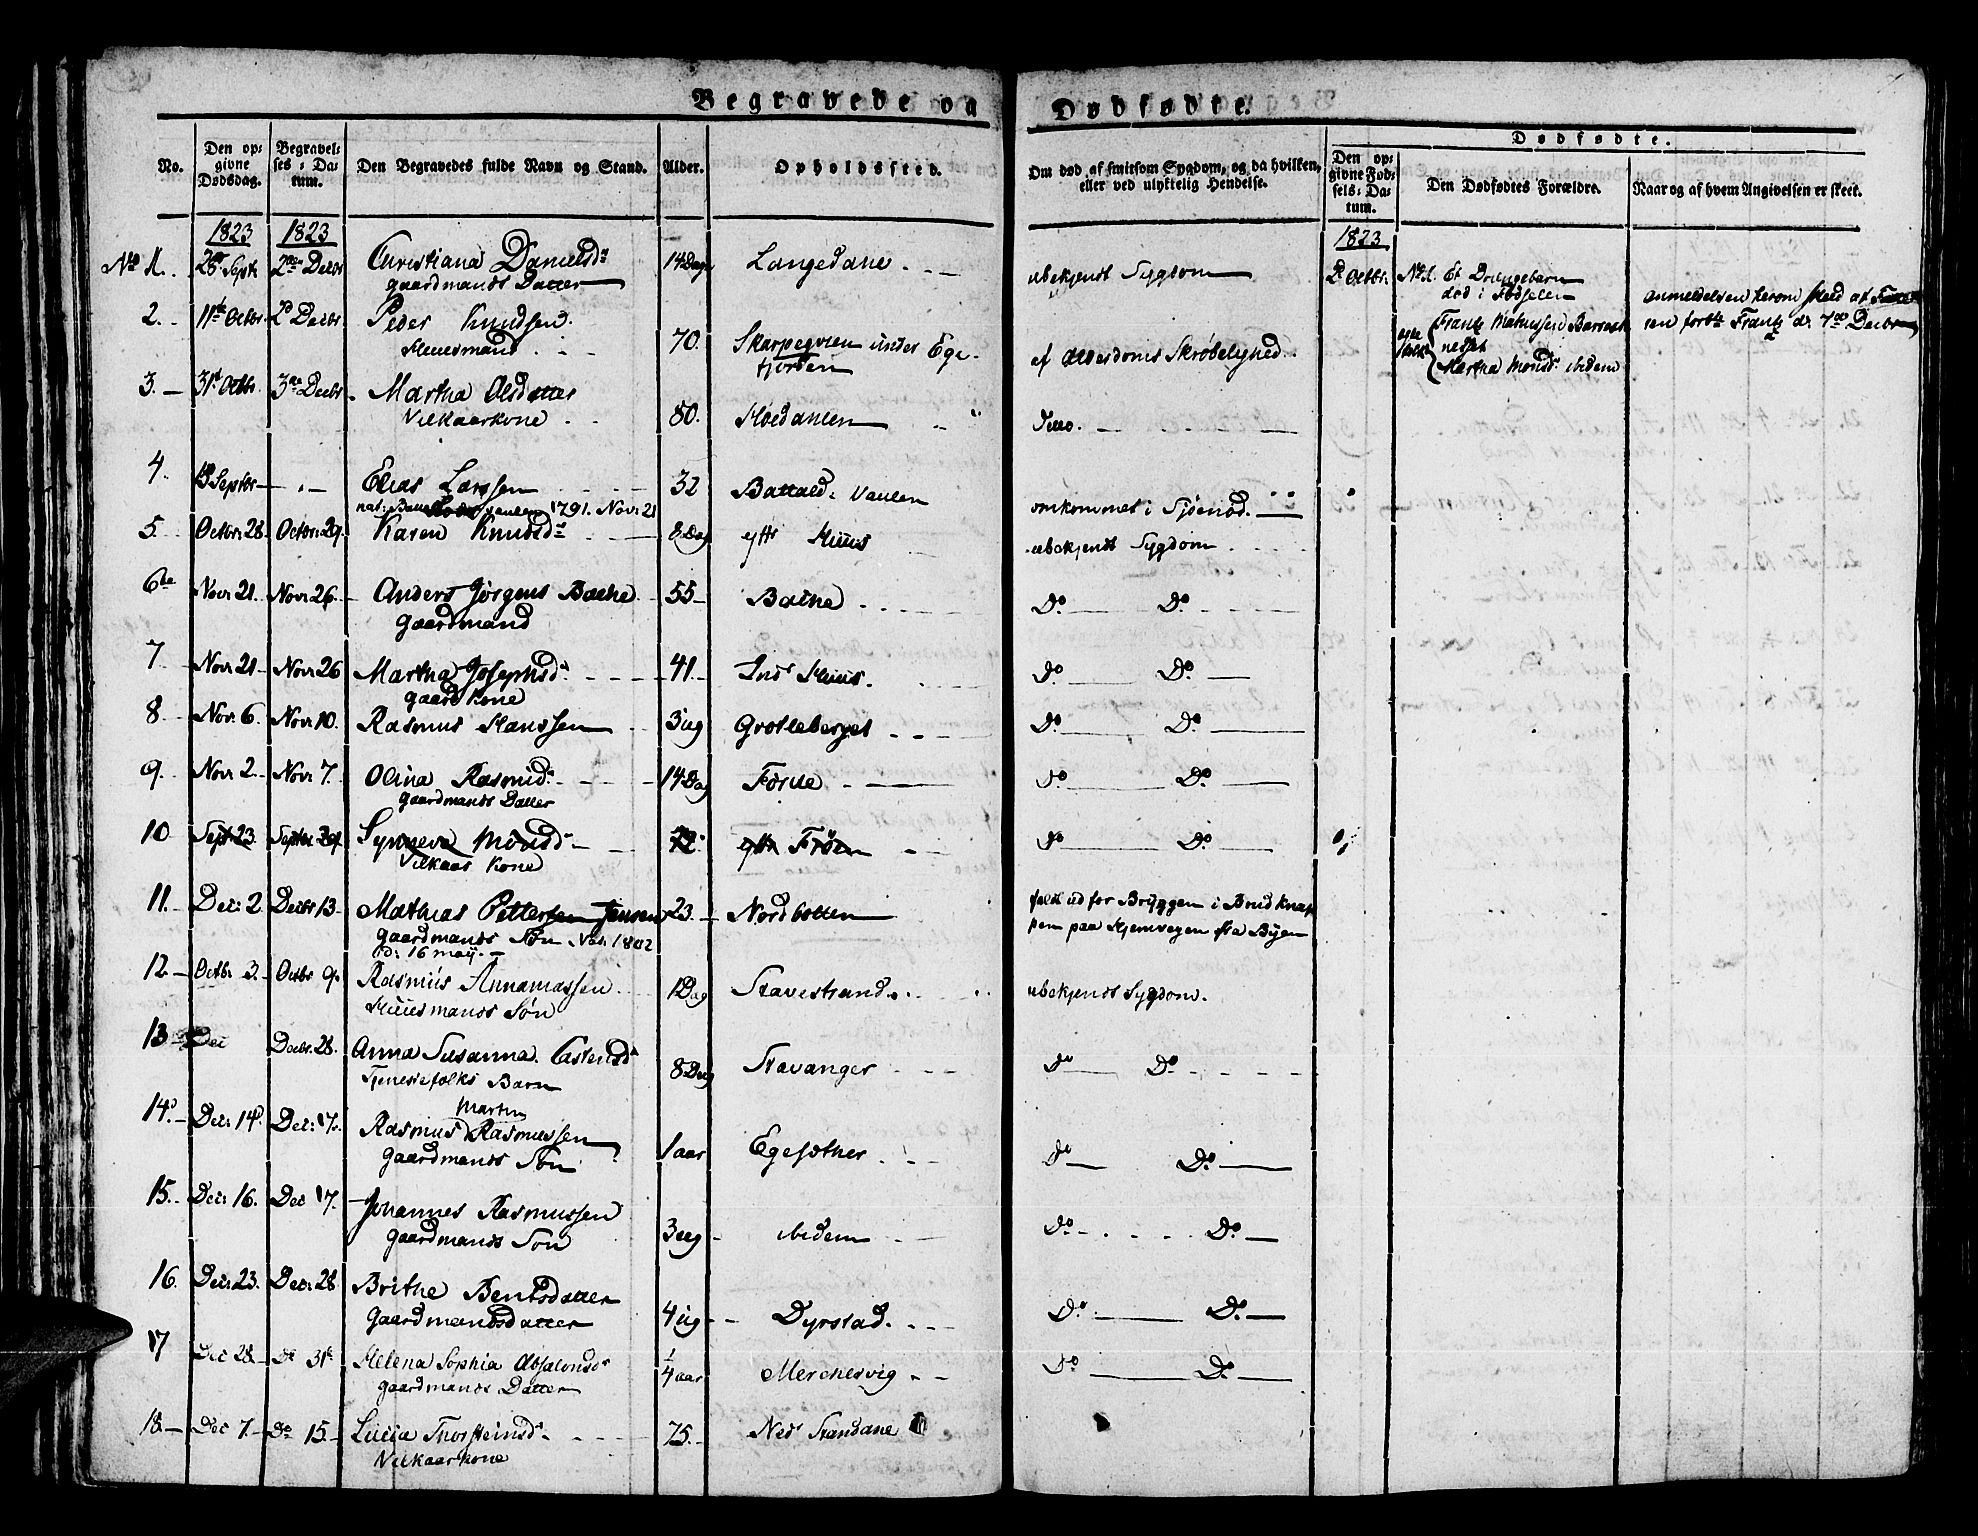 Begravede og Dødfødte.
No.
Den opgivne Dødsdag.
Begravelses-Datum.
Den Begravedes fulde Navn og Stand.
Alder.
Opholdssted.
Om død af smitsom Sygdom, og da hvilken, eller ved ulykkelig Hendelse.
Dødfødte.
Den opgivne Fødsels-Datum.
Den Dødfødtes Forældre.
Naar og af hvem Angivelsen er skeet.
1823 1823 1823
No 1. 28 Septr 2den Decbr Christiana Danielsdr 14 Dage Langedane ubekjendt Sygdom
gaardmands Datter
2 Octbr. No 1. Et Drengebarn
død i Fødselen
Frantz Mathissen
nesset
Martha Monsdr ibidem
anmeldelsen herom skeed af
Frantz d. 7de Decbr
2. 11te Octbr 2d Decbr Peder Knudsen 70. Skarpeqvien under Ege- af Alderdoms Skrøbelighed
Huusmand fjorden
3. 31t Octbr. 3die Decbr Martha Olsdatter 80. Høedanlen Ditto.
Vilkaarkone
4. 13 Septbr - " - Elias Larssen 32 Battald: Vaulen omkommet i Sjøenød.
1791. Nov: 21
5. Octbr: 28. Octbr: 29. Karen Knudsdr 8 Dag ytt: Huus ubekjendt Sygdom
6te Nov: 21. Nov: 26. Anders Jørgens Bathe 55 Bathe Do Do
Gaardmand
7 Nov: 21 Nov: 26 Martha Josephsdr 41. Ind: Huus. Do Do
gaardkone
8 Nov: 6. Nov: 10. Rasmus Hanssen 3 ug Grotleberget Do Do
9. Nov: 2. Nov: 7. Olina Rasmusd: 14 Dag Førde Do Do
Gaardmands Datter
10 Sept: 23. Septbr 29. Synneva Monsd: 72 ytt: Frøen Do Do
Vilkaar Kone
11. Dec: 2 Decbr 13 Mathias Pettersen Jensen 23. Nordbotten faldt ud for Bryggen i Brud Knap
gaardmands Søn. Nat: 1802 pen paa Hjemvegen fra Byen
d: 16 maij.
12. Octbr. 3. Octbr 9. Rasmus Annanassen 1 Dag Stavestrand ubekjendt Sygdom.
Huusmands Søn
13 Dec Decbr. 28. Anna Susanna Castensdr 8 Dag Stavanger Do Do
Tjenestefolks Barn
Martin
14. Dec: 14d Dec: 17. Rasmus Rasmussen 1 aar Egesæther Do Do
Gaardmands Søn
15. Dec: 16. Dec 17. Johannes Rasmussen 3 ug ibidem Do Do
Gaardmands Søn
16. Dec: 23. Dec: 28 Brithe Bentsdatter 4 ug Dyrstad. Do Do
Gaardmandsdatter
17 Dec 28. Do 31te Helena Sophia Absalonsdr 1/4 aar Merchesvig Do Do
gaardmands Datter
18. Dec 7. Do 15. Lucia Thorsteinsdr 75. Ned Standane
Vilkaarkone